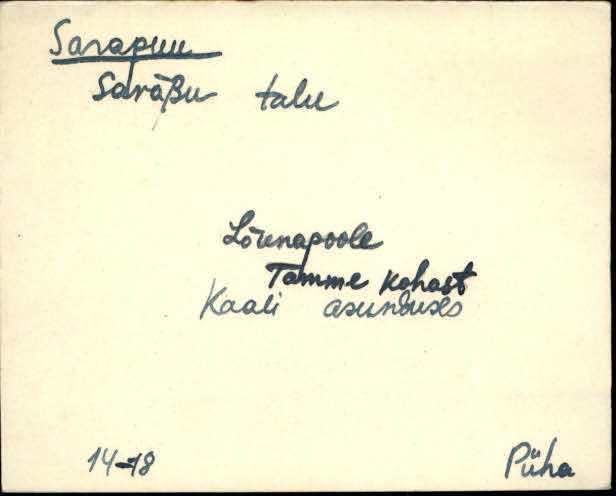 Sarapuu
Saraʙu talu
Lõunapoole
Tamme kohast
Kaali asunduses
14-18
Püha